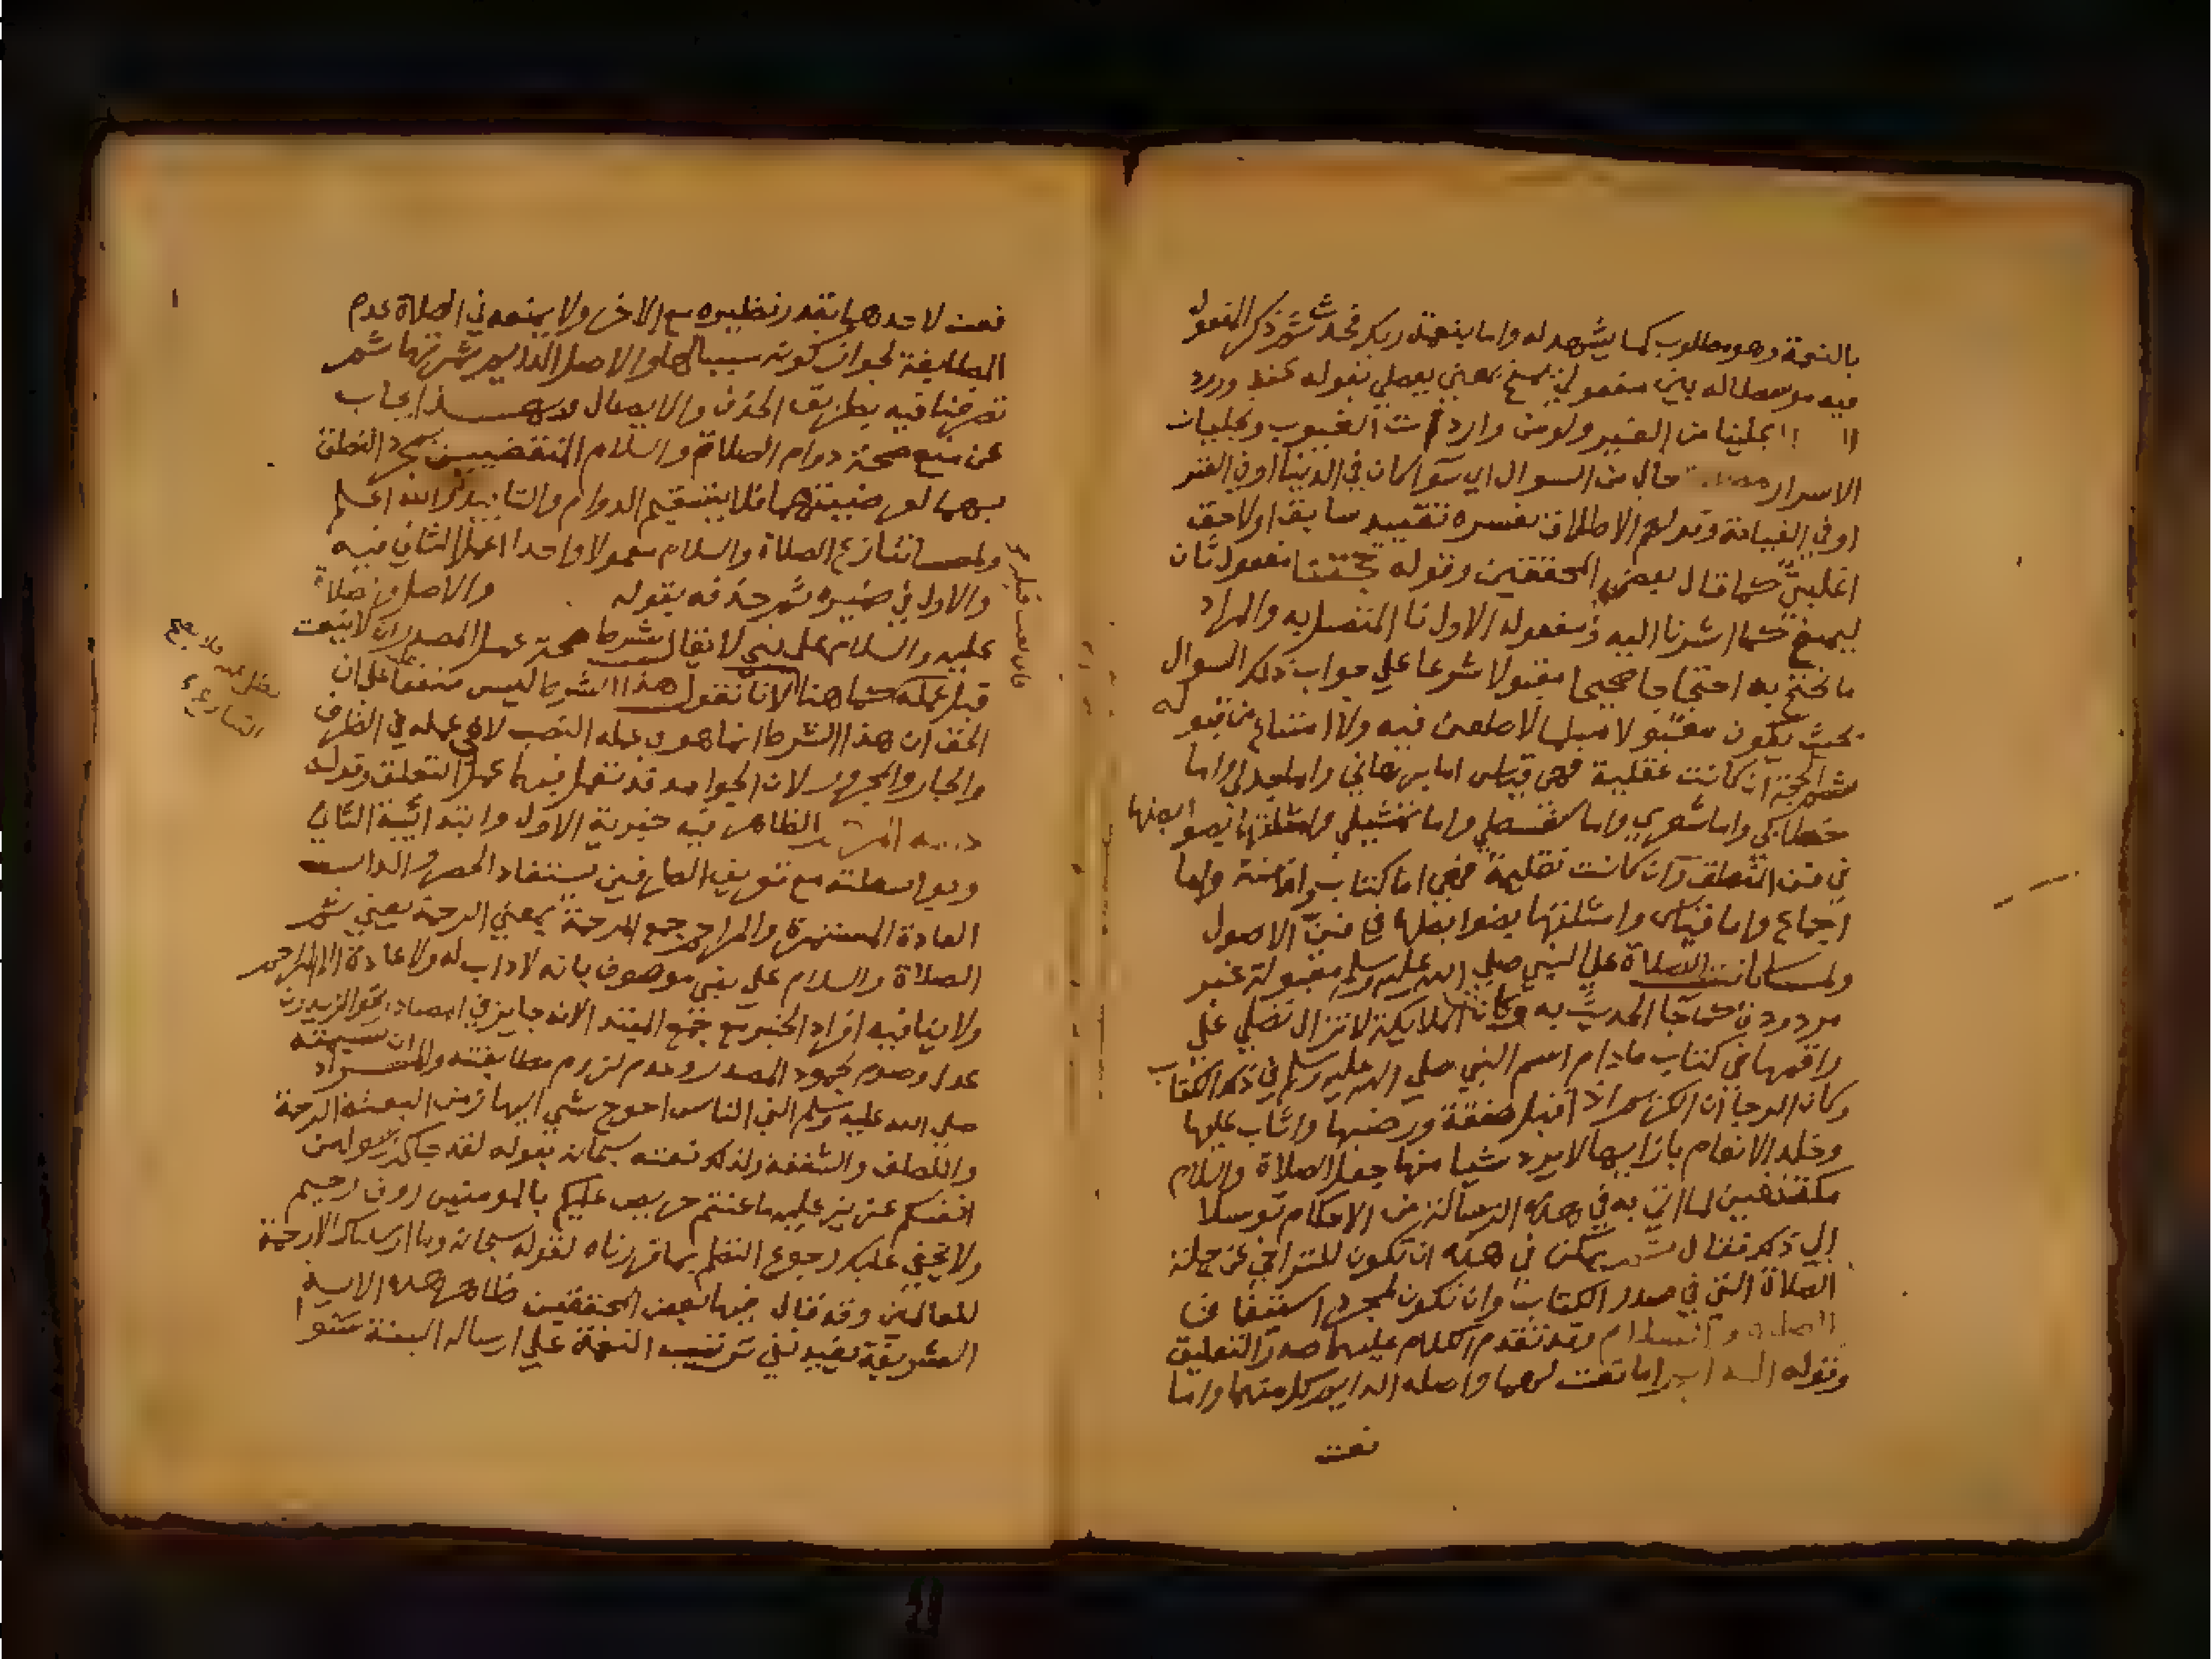 بالنعمة وهو مطلوب كما يشهد له واما بنعمة ربك فحدث ثم ذكر المفعول
فيه بين مفعولي يمنح بمعني يعطي بقوله عند ورود
علينا من الغير ولو من واردات الغيوب وتجليات
الاسرار حال من السوال اي سوا كان في الدنيا او في القبر
او في القيامة وقولهم الاطلاق يفسره تقييد سابق او لاحق
اغلبي كما قال بعض المحققين وقوله حجتنا مفعول ثان
ليمنح كما اشرنا اليه ومفعوله الاول نا المتصل به والمراد
ما نحتج به احتجاجا صحيحا مقبولا شرعا علي جواب ذلك السوال
بحيث يكون مقبولا لا طعن فيه ولا امتناع من قبوله
ثم الحجة ان كانت عقلية فهي قياس اما برهاني واما جدلي واما
خطابي واما شعري واما سفسطي واما تمثيلي وامثلتها بضوابطها
في فن المنطق وان كانت نقلية فهي اما كتاب او سنة واما
اجماع واما قياس وامثلتها بضوابطها في فن الاصول
ولما كانت الصلاة علي النبي صلي الله عليه وسلم مقبولة غير
مردودة كما جا الحديث به وكانت الملايكة لا تزال تصلي علي
راقمها في كتاب مادام اسم النبي صلي الله عليه وسلم في ذلك الكتاب
وكان الرجا ان الكريم اذا قبل صفقة ورضيها واثاب عليها
وخلد الانعام بازايها لا يرد شيا منها جعل الصلاة والسلام
مكتنفين لما اتي به في هذه الرسالة من الاحكام توسلا
الي ذلك فقال ثم يمكن في هذه ان تكون للتراخي عن جملة
الصلاة التي في صدر الكتاب وان تكون لمجرد استيناف
الصلاة والسلام وقد تقدم الكلام عليهما صدر التعليق
وقوله الدايم اما نعت لهما واصله الدايم كل منهما واما
نعت
نعت لاحدهما يقدر نظيره مع الاخر ولا يمنعه في الصلاة عدم
المطابقة لجواز كونه سببيا لها والاصل الدايم ثمرتها ثم
تصرفنا فيه بطريق الحذف والايصال وبهذا يجاب
عن منع صحة دوام الصلاة والسلام المنقضيين بمجرد النطق
بهما لعرضيتهما فلا يستقيم الدوام والتابيد والله اعلم
ولما تنازع الصلاة والسلام معمولا واحدا اعمل الثاني فيه
والاول في ضميره ثم حذفه بقوله والاصل وصلاة
عليه والسلام علي نبي لا يقال شرط صحة عمل المصدر ان لا ينعت
قبل عمله كما هنا لانا نقول هذا الشرط ليس متفقا علي ان
الحق ان هذا الشرط انما هو في عمله النصب لا في عمله في الظرف
والجار والمجرور لان الجوامد قد تعمل فيهما عمل التعلق وقوله
الظاهر فيه خبرية الاول وابتدائية الثاني
وبواسطته مع تعريف الطرفين يستفاد الحصر والداب
العادة المستمرة والمراحم جمع المرحمة بمعني الرحمة يعني ثم
الصلاة والسلام علي نبي موصوف بانه لا داب له ولا عادة الا المراحم
ولا ينافيه افراد الخبر مع جمع المبتدا لانه جايز في المصادر نحو الزيدون
عدل وصوم لجمود المصدر وعدم لزوم مطابقته والمراد ان سجيته
صلي الله عليه وسلم التي الناس احوج شي اليها زمن البعثة الرحمة
واللطف والشفقة ولذلك نعته سبحانه بقوله لقد جاكم رسول من
انفسكم عزيز عليه ما عنتم حريص عليكم بالمومنين روف رحيم
ولا يخفي عليك رجوع النظم بما قررناه لقوله سبحانه وما ارسلناك الا رحمة
للعالمين وقد قال فيها بعض المحققين ظاهر هذه الاية
الشريفة يفيد نفي ترتيب النعمة علي ارساله البتة سوا
فلا يصح
عمله
التنازع